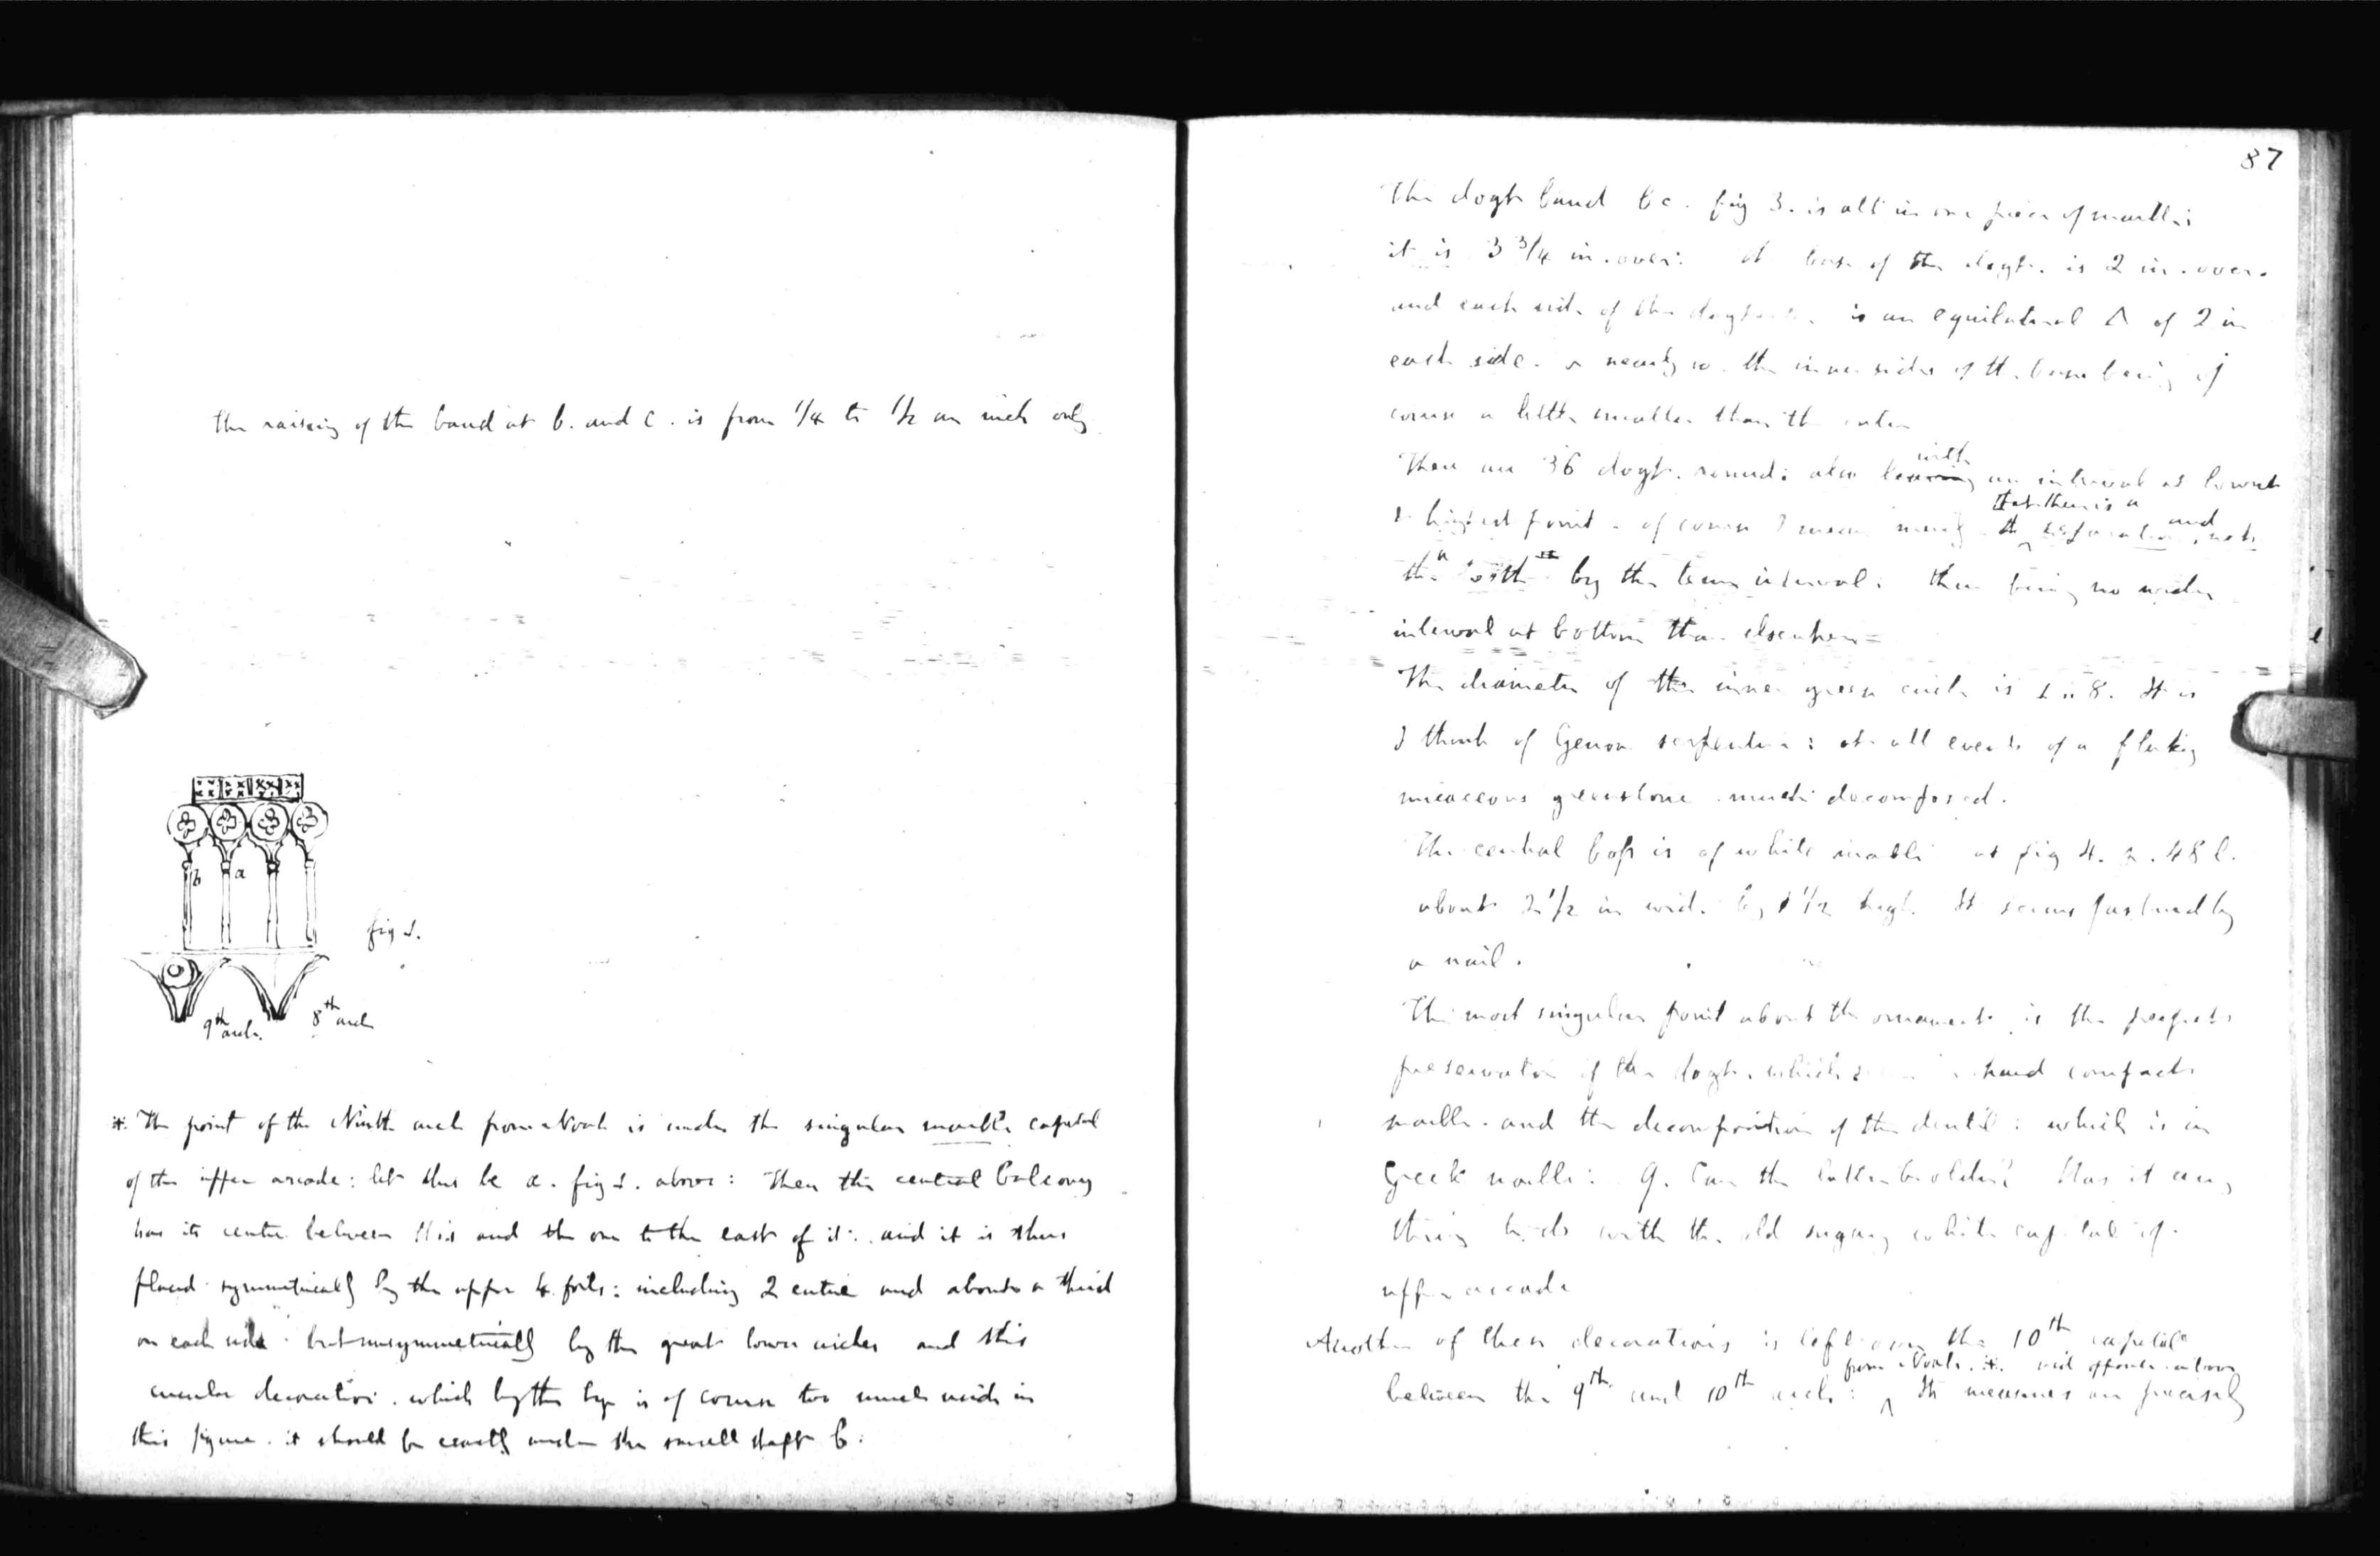 the raising of the band at b. and c. is from 1/4 to 1/2 an inch only
b a
fig 1.
9th arch. 8th arch
*. The point of the Ninth arch from Noah is under the singular marble capital
of the upper arcade: let this be a. fig 1. above: Then the central balcony
has its centre between this and the one to the east of it: and it is thus
placed symmetrically by the upper 4 foils: including 2 entire and about a third
on each side. but unsymmetrically by the great lower arches and this
circular decoration. which by the bye is of course too much wide in
this figure. it should be exactly under the small shaft b:
87
The dogt band bc. fig 3. is all in one piece of marble:
it is 3 3/4 in. over: at base of the dogt. is 2 in. over.
and each side of the dogtooth. is an equilateral Δ of 2 in
each side. or nearly so. the inner sides of the base being of
course a little smaller than the outer
There are 36 dogt. round: also leaving with an interval at lowest
& highest point. of course I mean merely that there is a separation and, not
the tooth by the term interval. there being no wider
interval at bottom than elsewhere =
The diameter of the inner green circle is 1 .. 8. It is
I think of Genoa serpentine: at all events of a flaky
micaceous greenstone much decomposed.
The central boss is of white marble as fig 4. p. 48 l.
about 2 1/2 in wide by 1 1/2 high. It seems fastened by
a nail.
The most singular point about the ornament is the perfect
preservation of the dogt. which is hard compact
marble. and the decomposition of the dentil: which is in
Greek marble: Q. Can the latter be older? Has it any
thing to do with the old sugary white capitals of
upper arcade
Another of these decorations is left over the 10th capital
from Noah. *. and above
between the 9th and 10th arch: It measures precisely